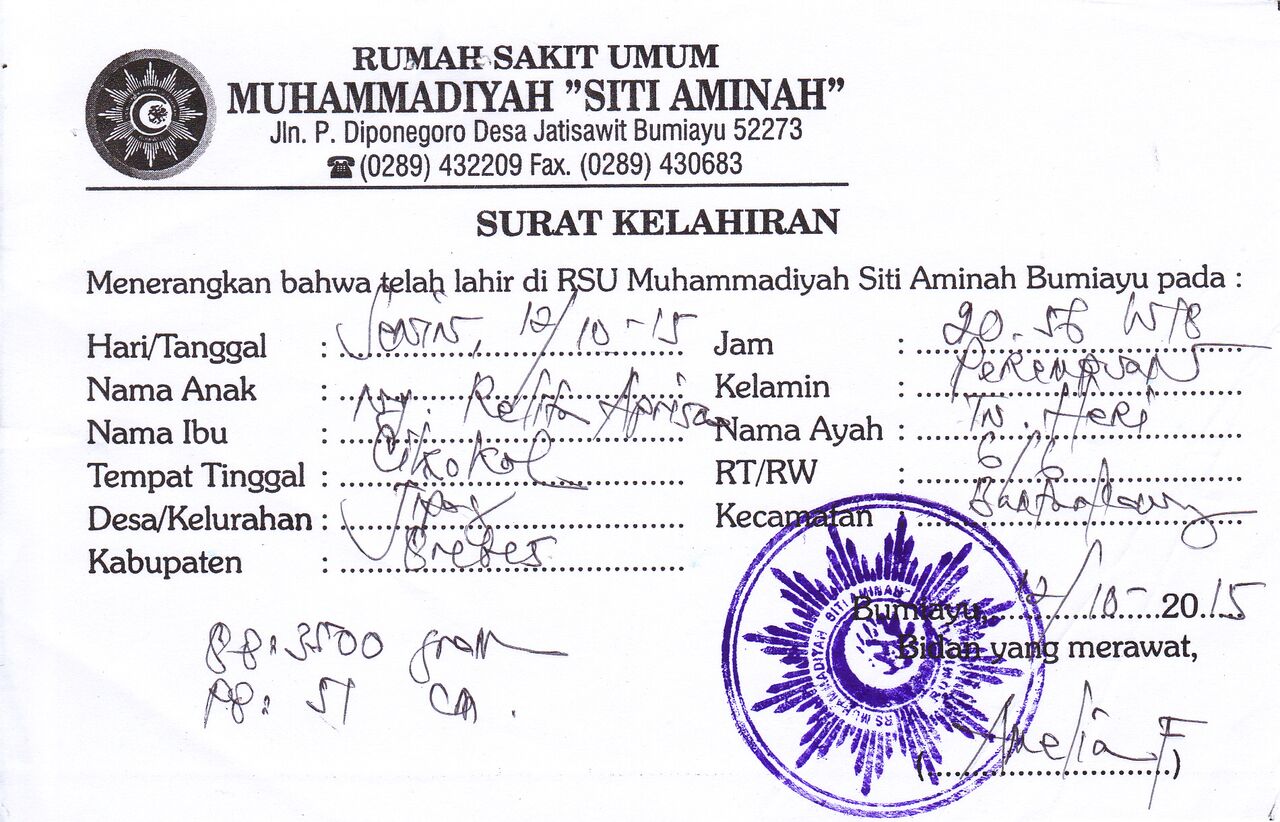 RUMAH SAKIT UMUM
MUHAMMADIYAH ”SITI AMINAH”
Jln. P. Diponegoro Desa Jatisawit Bumiayu 52273
☎ (0289) 432209 Fax. (0289) 430683
SURAT KELAHIRAN
Menerangkan bahwa telah lahir di RSU Muhammadiyah Siti Aminah Bumiayu pada :
Hari/Tanggal : Senin, 12/10-15 Jam : 20.56 WIB
Nama Anak : Kelamin : Perempuan
Nama Ibu : Ny. Relita Nama Ayah : Tn. Heri
Tempat Tinggal : Cikokol RT/RW : 6/6
Desa/Kelurahan : Kecamatan :
Kabupaten : Brebes
Bumiayu, 12/10-2015
Bidan yang merawat,
BB: 3500 gram
PB: 51 cm.
(Amelia F)
SITI AMINAH
RS MUHAMMADIYAH